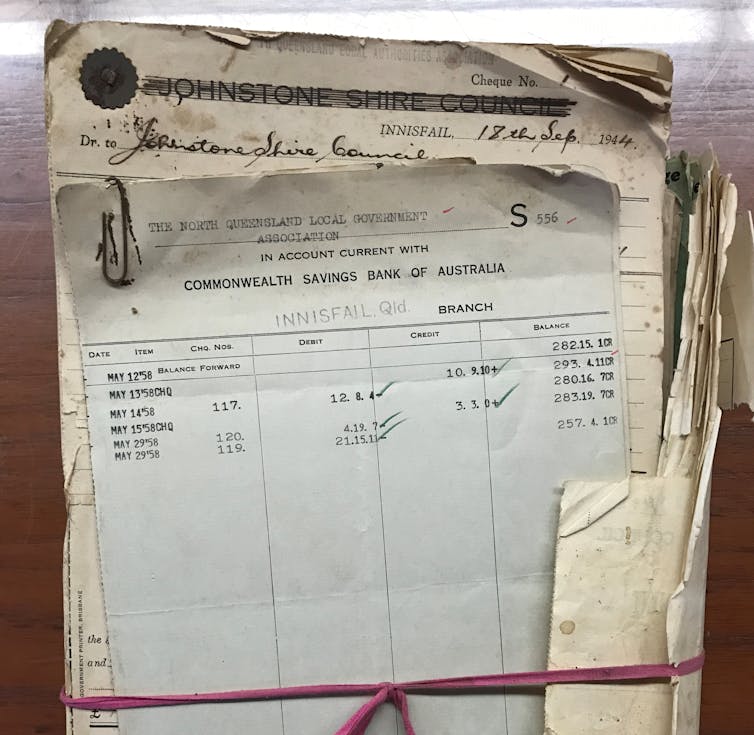 TO QUEENSLAND LOCAL AUTHORITIES ASSOCIATION
Cheque No.
JOHNSTONE SHIRE COUNCIL
INNISFAIL, 18th Sep. 1944.
Dr. to Johnstone Shire Council
THE NORTH QUEENSLAND LOCAL GOVERNMENT S 556
ASSOCIATION
IN ACCOUNT CURRENT WITH
COMMONWEALTH SAVINGS BANK OF AUSTRALIA
INNISFAIL, Qld. BRANCH
DATE ITEM CHQ. NOS. DEBIT CREDIT BALANCE
MAY 12'58 BALANCE FORWARD 282.15. 1CR
MAY 13'58CHQ 10. 9.10+ 293. 4.11CR
MAY 14'58 117. 12. 8. 4- 280.16. 7CR
MAY 15'58CHQ 3. 3. 0+ 283.19. 7CR
MAY 29'58 120. 4.19. 7-
MAY 29'58 119. 21.15.11- 257. 4. 1CR
GOVERNMENT PRINTER, BRISBANE
the
and
£